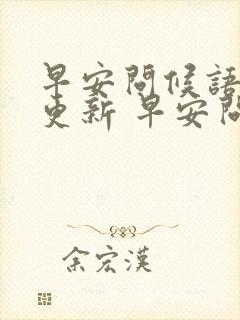 早安問候語
更新 早安問
余宏漢